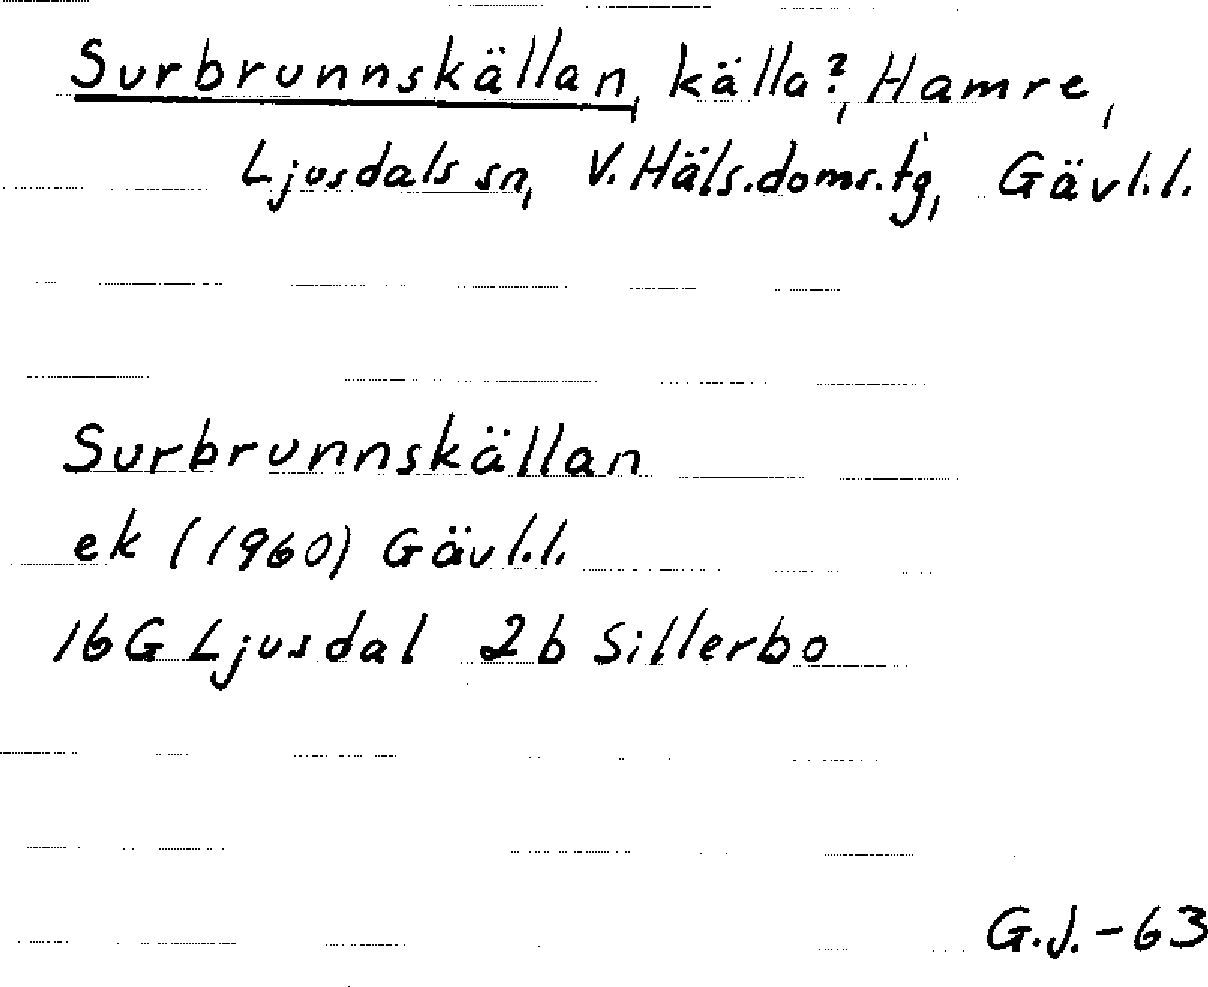 Surbrunnskällan, källa?, Hamre,
Ljusdals sn, V. Häls.doms.tg, Gävl.l.
Surbrunnskällan
ek (1960) Gävl.l.
16G Ljusdal 2b Sillerbo
G.J.-63